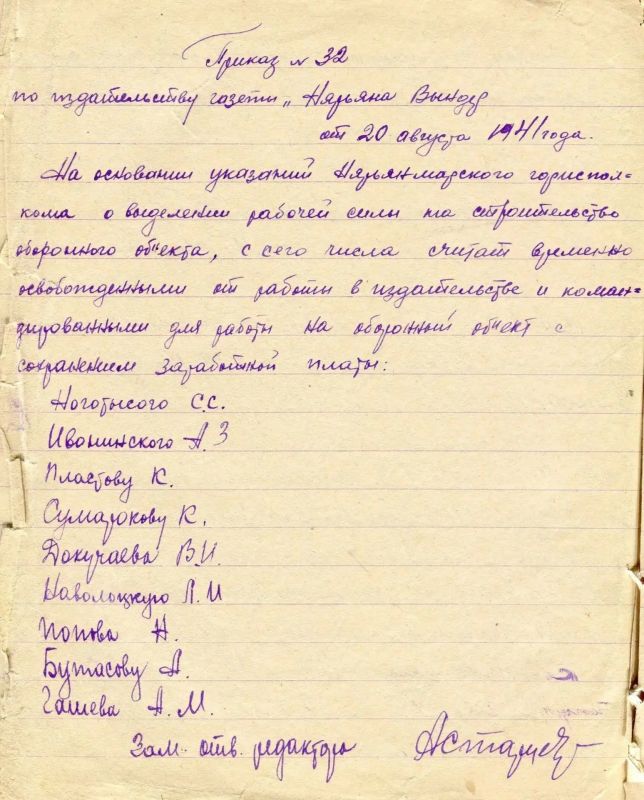 Приказ № 32
по издательству газеты „Няръяна Вындер
от 20 августа 1941 года.
На основании указаний Нарьянмарского гориспол=
кома о выделении рабочей силы на строительство
оборонного об"екта, с сего числа считать временно
освобожденными от работы в издательстве и коман=
дированными для работы на оборонный об"ект с
сохранением заработной платы:
Ноготысого С.С.
Иванинского А.З
Пластову К.
Сумарокову К.
Докучаева В.И.
Наволоцкую Л.И
Попова Н.
Бутасову А.
Гашева А.М.
Зам. отв. редактора